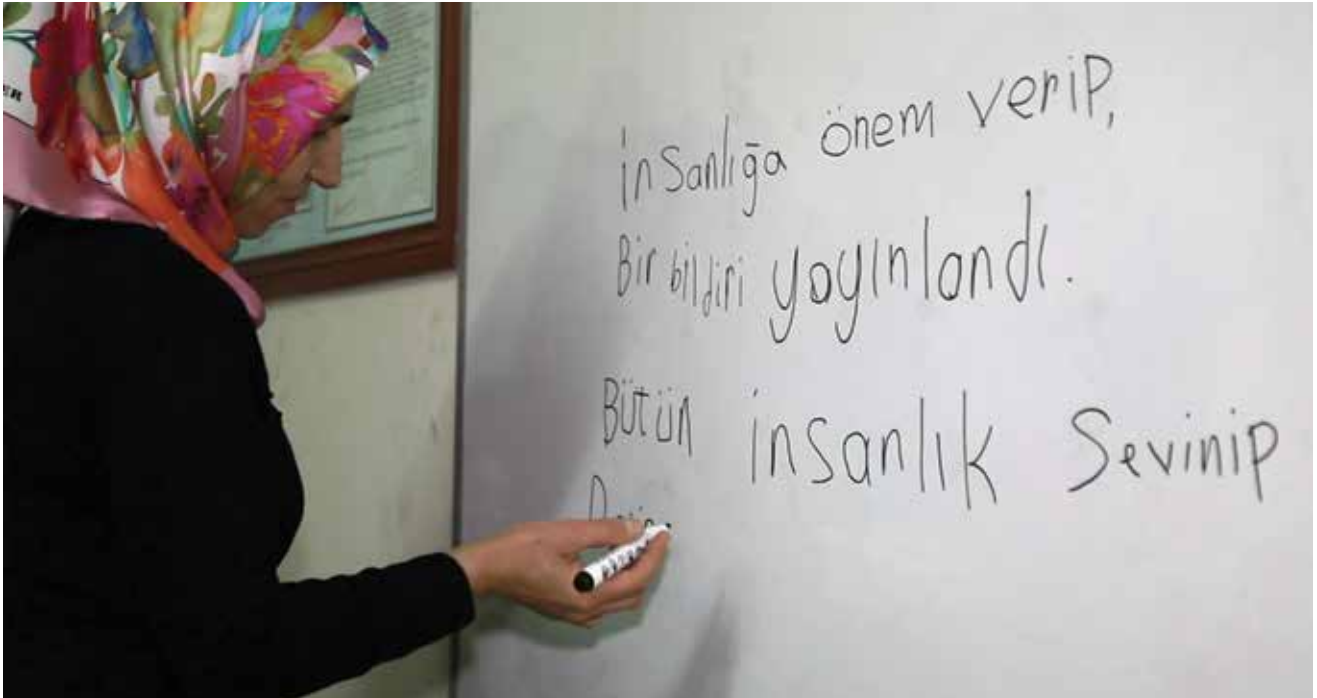 insanlığa önem verip,
Bir bildiri yayınlandı.
Bütün insanlık Sevinip